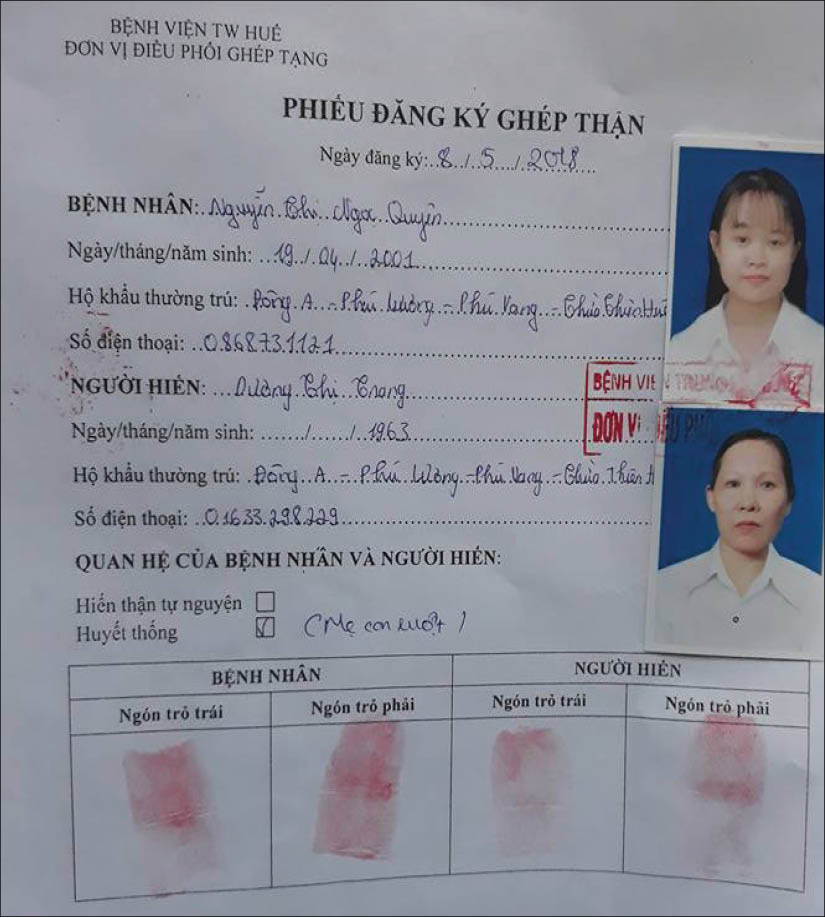 BỆNH VIỆN TW HUẾ
ĐƠN VỊ ĐIỀU PHỐI GHÉP TẠNG
PHIẾU ĐĂNG KÝ GHÉP THẬN
Ngày đăng ký: 8./.5./.2018
BỆNH NHÂN: Nguyễn Thị Ngọc Quyên
Ngày/tháng/năm sinh: 19./.04./.2001
Hộ khẩu thường trú: Đông A - Phú Lương - Phú Vang - Thừa Thiên Huế
Số điện thoại: 0868731121
NGƯỜI HIẾN: Dương Thị Trang
BỆNH VIỆN TRUNG
ĐƠN VỊ ĐIỀU PHỐI
Ngày/tháng/năm sinh: ....../....../.1963
Hộ khẩu thường trú: Đông A - Phú Lương - Phú Vang - Thừa Thiên H
Số điện thoại: 01633.298.229
QUAN HỆ CỦA BỆNH NHÂN VÀ NGƯỜI HIẾN:
Hiến thận tự nguyện
Huyết thống (Mẹ con ruột)
BỆNH NHÂN NGƯỜI HIẾN
Ngón trỏ trái Ngón trỏ phải Ngón trỏ trái Ngón trỏ phải